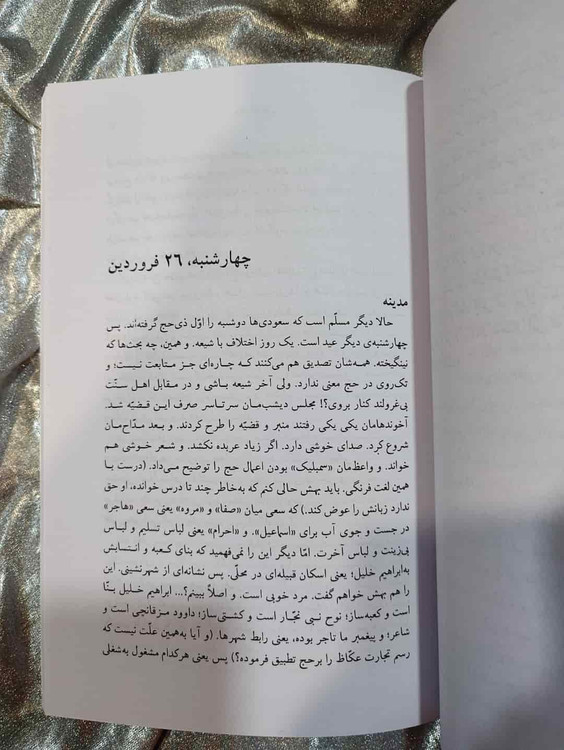 چهارشنبه، ۲۶ فروردین
مدینه
حالا دیگر مسلّم است که سعودی‌ها دوشنبه را اوّل ذی‌حج گرفته‌اند. پس
چهارشنبه‌ی دیگر عید است. یک روز اختلاف با شیعه. و همین، چه بحث‌ها که
نینگیخته. همه‌شان تصدیق هم می‌کنند که چاره‌ای جز متابعت نیست؛ و
تک‌روی در حج معنی ندارد. ولی آخر شیعه باشی و در مقابل اهل سنّت
بی‌غرولند کنار بروی؟! مجلس دیشب‌مان سرتاسر صرف این قضیّه شد.
آخوندهامان یکی یکی رفتند منبر و قضیّه را طرح کردند. و بعد مدّاح‌مان
شروع کرد. صدای خوشی دارد. اگر زیاد عربده نکشد. و شعر خوشی هم
خواند. و واعظ‌مان «سمبلیک» بودن اعمال حج را توضیح می‌داد. (درست با
همین لغت فرنگی. باید بهش حالی کنم که به‌خاطر چند تا درس خوانده، او حق
ندارد زبانش را عوض کند.) که سعی میان «صفا» و «مروه» یعنی سعی «هاجر»
در جست و جوی آب برای «اسماعیل». و «احرام» یعنی لباس تسلیم و لباس
بی‌زینت و لباس آخرت. امّا دیگر این را نمی‌فهمید که بنای کعبه و انتسابش
به‌ابراهیم خلیل؛ یعنی اسکان قبیله‌ای در محلّی. پس نشانه‌ای از شهرنشینی. این
را هم بهش خواهم گفت. مرد خوبی است. و اصلاً ببینم؟... ابراهیم خلیل بنّا
است و کعبه‌ساز؛ نوح نبی نجّار است و کشتی‌ساز؛ داوود مزقانچی است و
شاعر؛ و پیغمبر ما تاجر بوده، یعنی رابط شهرها. (و آیا به‌همین علّت نیست که
رسم تجارت عکّاظ را برحج تطبیق فرموده؟) پس یعنی هرکدام مشغول به‌شغلی